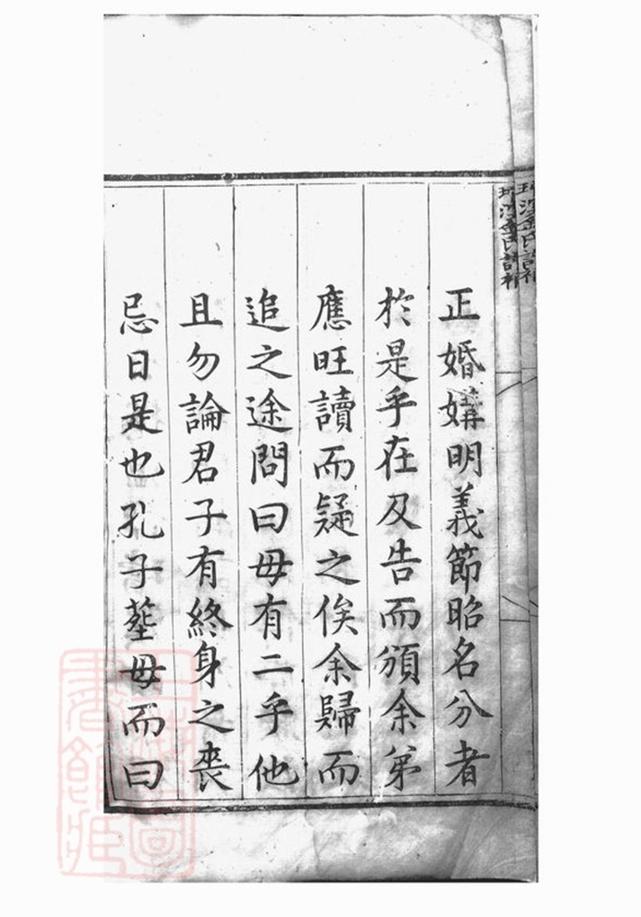 正婚媾明義節昭名分者
於是乎在及告而頒余弟
應旺讀而疑之俟余歸而
追之途問曰毋有二乎他
且勿論君子有終身之喪
忌日是也孔子塟毋而曰